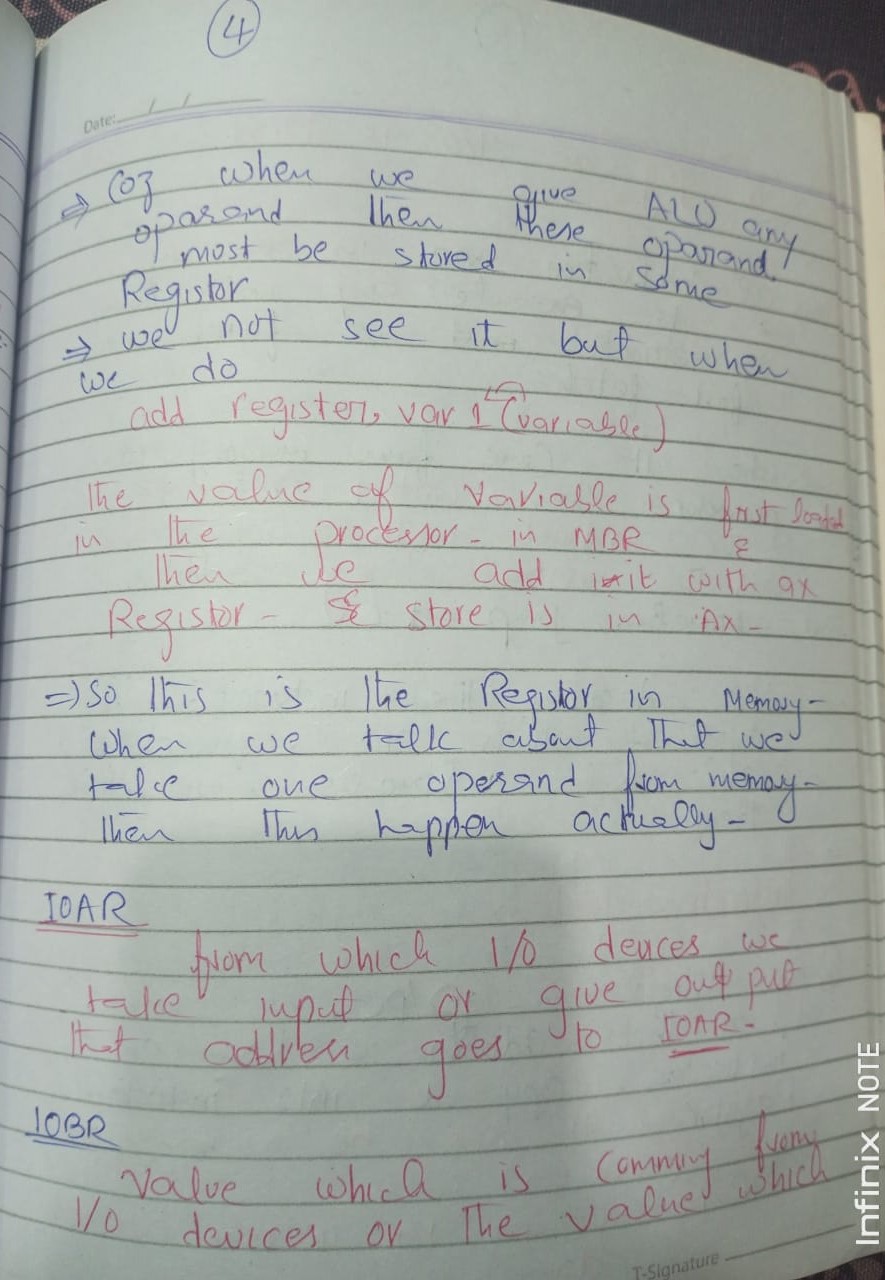 4
Date: / /
⇒ Coz when we give ALU any
oparand then these oparand
most be stored in some
Registor
⇒ we not see it but when
we do
add register, var 1 (variable)
The value of variable is first loaded
in the processor - in MBR &
then we add it with ax
Registor - & store is in Ax -
⇒ So this is the Registor in Memory -
When we talk about that we
take one operand from memory -
then this happen actually -
IOAR
from which I/O devices we
take input or give out put
that address goes to IOAR -
IOBR
Value which is comming from
I/O devices or the value which
T-Signature
Infinix NOTE